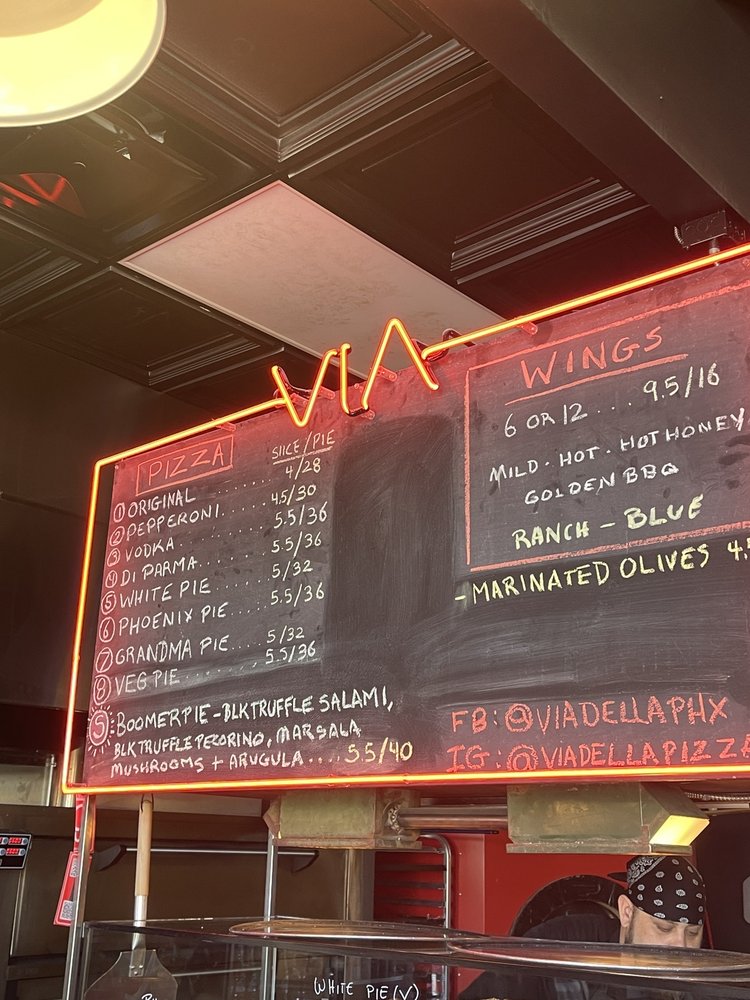 VIA
PIZZA
SLICE/PIE
① ORIGINAL ........ 4/28
② PEPPERONI .... 4.5/30
③ VODKA ........ 5.5/36
④ DI PARMA ...... 5.5/36
⑤ WHITE PIE ...... 5/32
⑥ PHOENIX PIE .... 5.5/36
⑦ GRANDMA PIE .... 5/32
⑧ VEG PIE ........ 5.5/36
S: BOOMER PIE - BLK TRUFFLE SALAMI,
BLK TRUFFLE PECORINO, MARSALA
MUSHROOMS + ARUGULA .... 5.5/40
WINGS
6 OR 12 ... 9.5/16
MILD · HOT · HOT HONEY
GOLDEN BBQ
RANCH - BLUE
- MARINATED OLIVES
FB: @VIADELLAPHX
IG: @VIADELLAPIZZA
WHITE PIE (V)